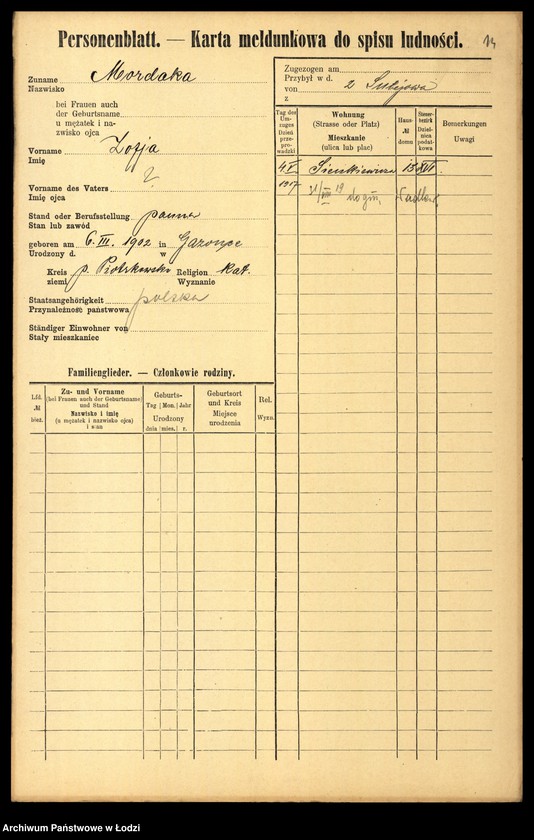 Personenblatt. — Karta meldunkowa do spisu ludności.
14
Zuname Nazwisko Mordaka
bei Frauen auch
der Geburtsname
u mężatek i na-
zwisko ojca
Vorname Zofja
Imię
?
Vorname des Vaters
Imię ojca
Stand oder Berufsstellung panna
Stan lub zawód
geboren am 6. III. 1902 in
Urodzony d. w
Kreis p. Piotrkowski Religion Kat.
ziemi Wyznanie
Staatsangehörigkeit polska
Przynależność państwowa
Ständiger Einwohner von
Stały mieszkaniec
Familienglieder. — Członkowie rodziny.
Lfd. № bież.
Zu- und Vorname
(bei Frauen auch der Geburtsname)
und Stand
Nazwisko i imię
(u mężatek i nazwisko ojca)
i stan
Geburts-
Tag | Mon. | Jahr
Urodzony
dnia | mies. | r.
Geburtsort
und Kreis
Miejsce
urodzenia
Rel.
Wyzn.
Zugezogen am
Przybył w d.
von z
z
Tag des Um-
zuges
Dzień
prze-
prowadzki
Wohnung
(Strasse oder Platz)
Mieszkanie
(ulica lub plac)
Haus-
№
domu
Steuer-
bezirk
Dziel-
nica
podat-
kowa
Bemerkungen
Uwagi
4. V. Sienkiewicza 15 XVI.
1917 31/VIII 19 do gm.
Archiwum Państwowe w Łodzi